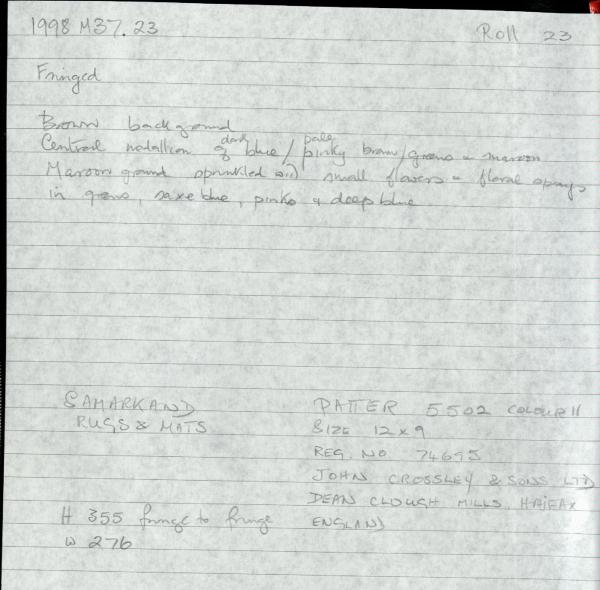 1998 M37.23
Roll 23
Fringed
Brown background
Central medallion of dark blue / pale pinky brown / greens & maroon
Maroon ground sprinkled with small flowers & floral sprays
in greens, saxe blue, pinks & deep blue
SAMARKAND
RUGS & MATS
H 355 fringe to fringe
W 276
PATTER 5502 COLOUR 11
SIZE 12 x 9
REG. NO 74695
JOHN CROSSLEY & SONS LTD
DEAN CLOUGH MILLS. HAIFAX
ENGLAND